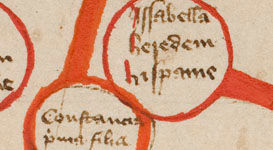 Issabella
heredem
hispanie
Constancia
pͥma filia